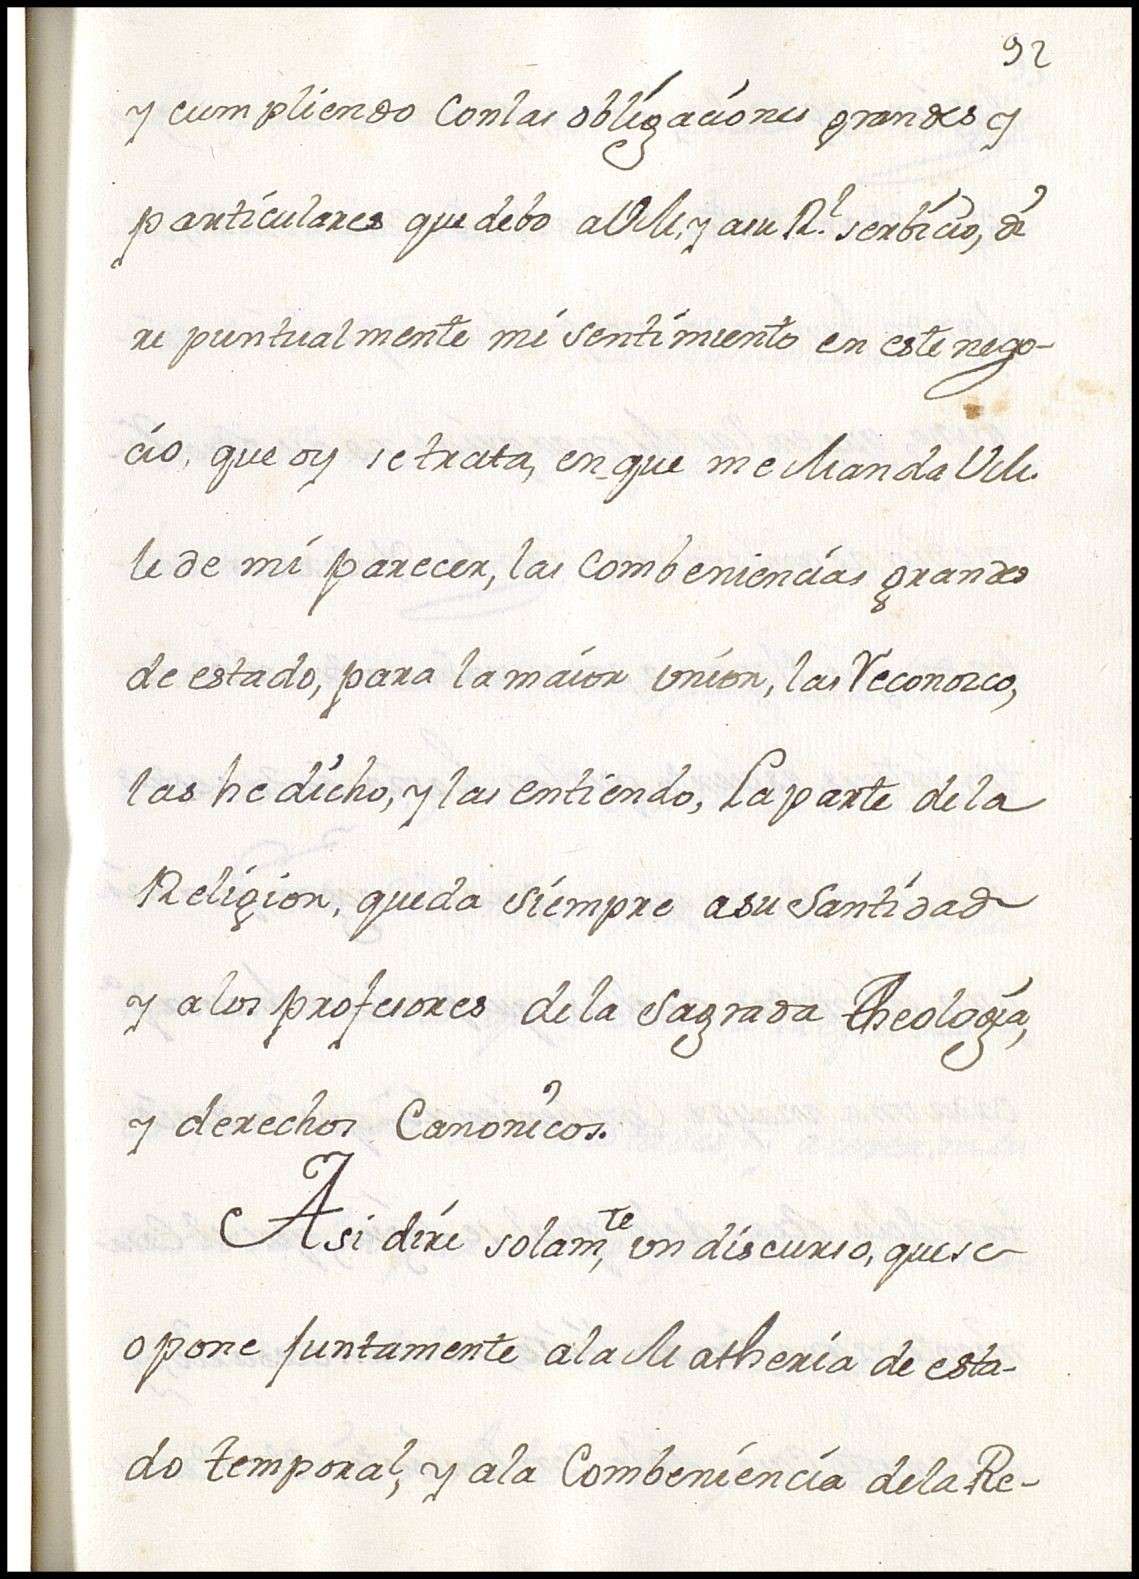 92
y cumpliendo Conlas obligaciones grandes y
particulares que debo aVM, y asu Rl. serbicio, di
re puntualmente mi sentimiento en este nego-
cio, que oy se trata, en que me Manda VM.
le de mi parecer, las Combeniencias grandes
de estado, para la maior union, las Reconozco,
las he dicho, y las entiendo, La parte dela
Religion, queda siempre asu Santidad
y alos profesores dela Sagrada Theologia,
y derechos Canonicos.
Asi dire solamte, un discurso, que se
opone juntamente ala Matheria de esta-
do temporal, y ala Combeniencia dela Re-